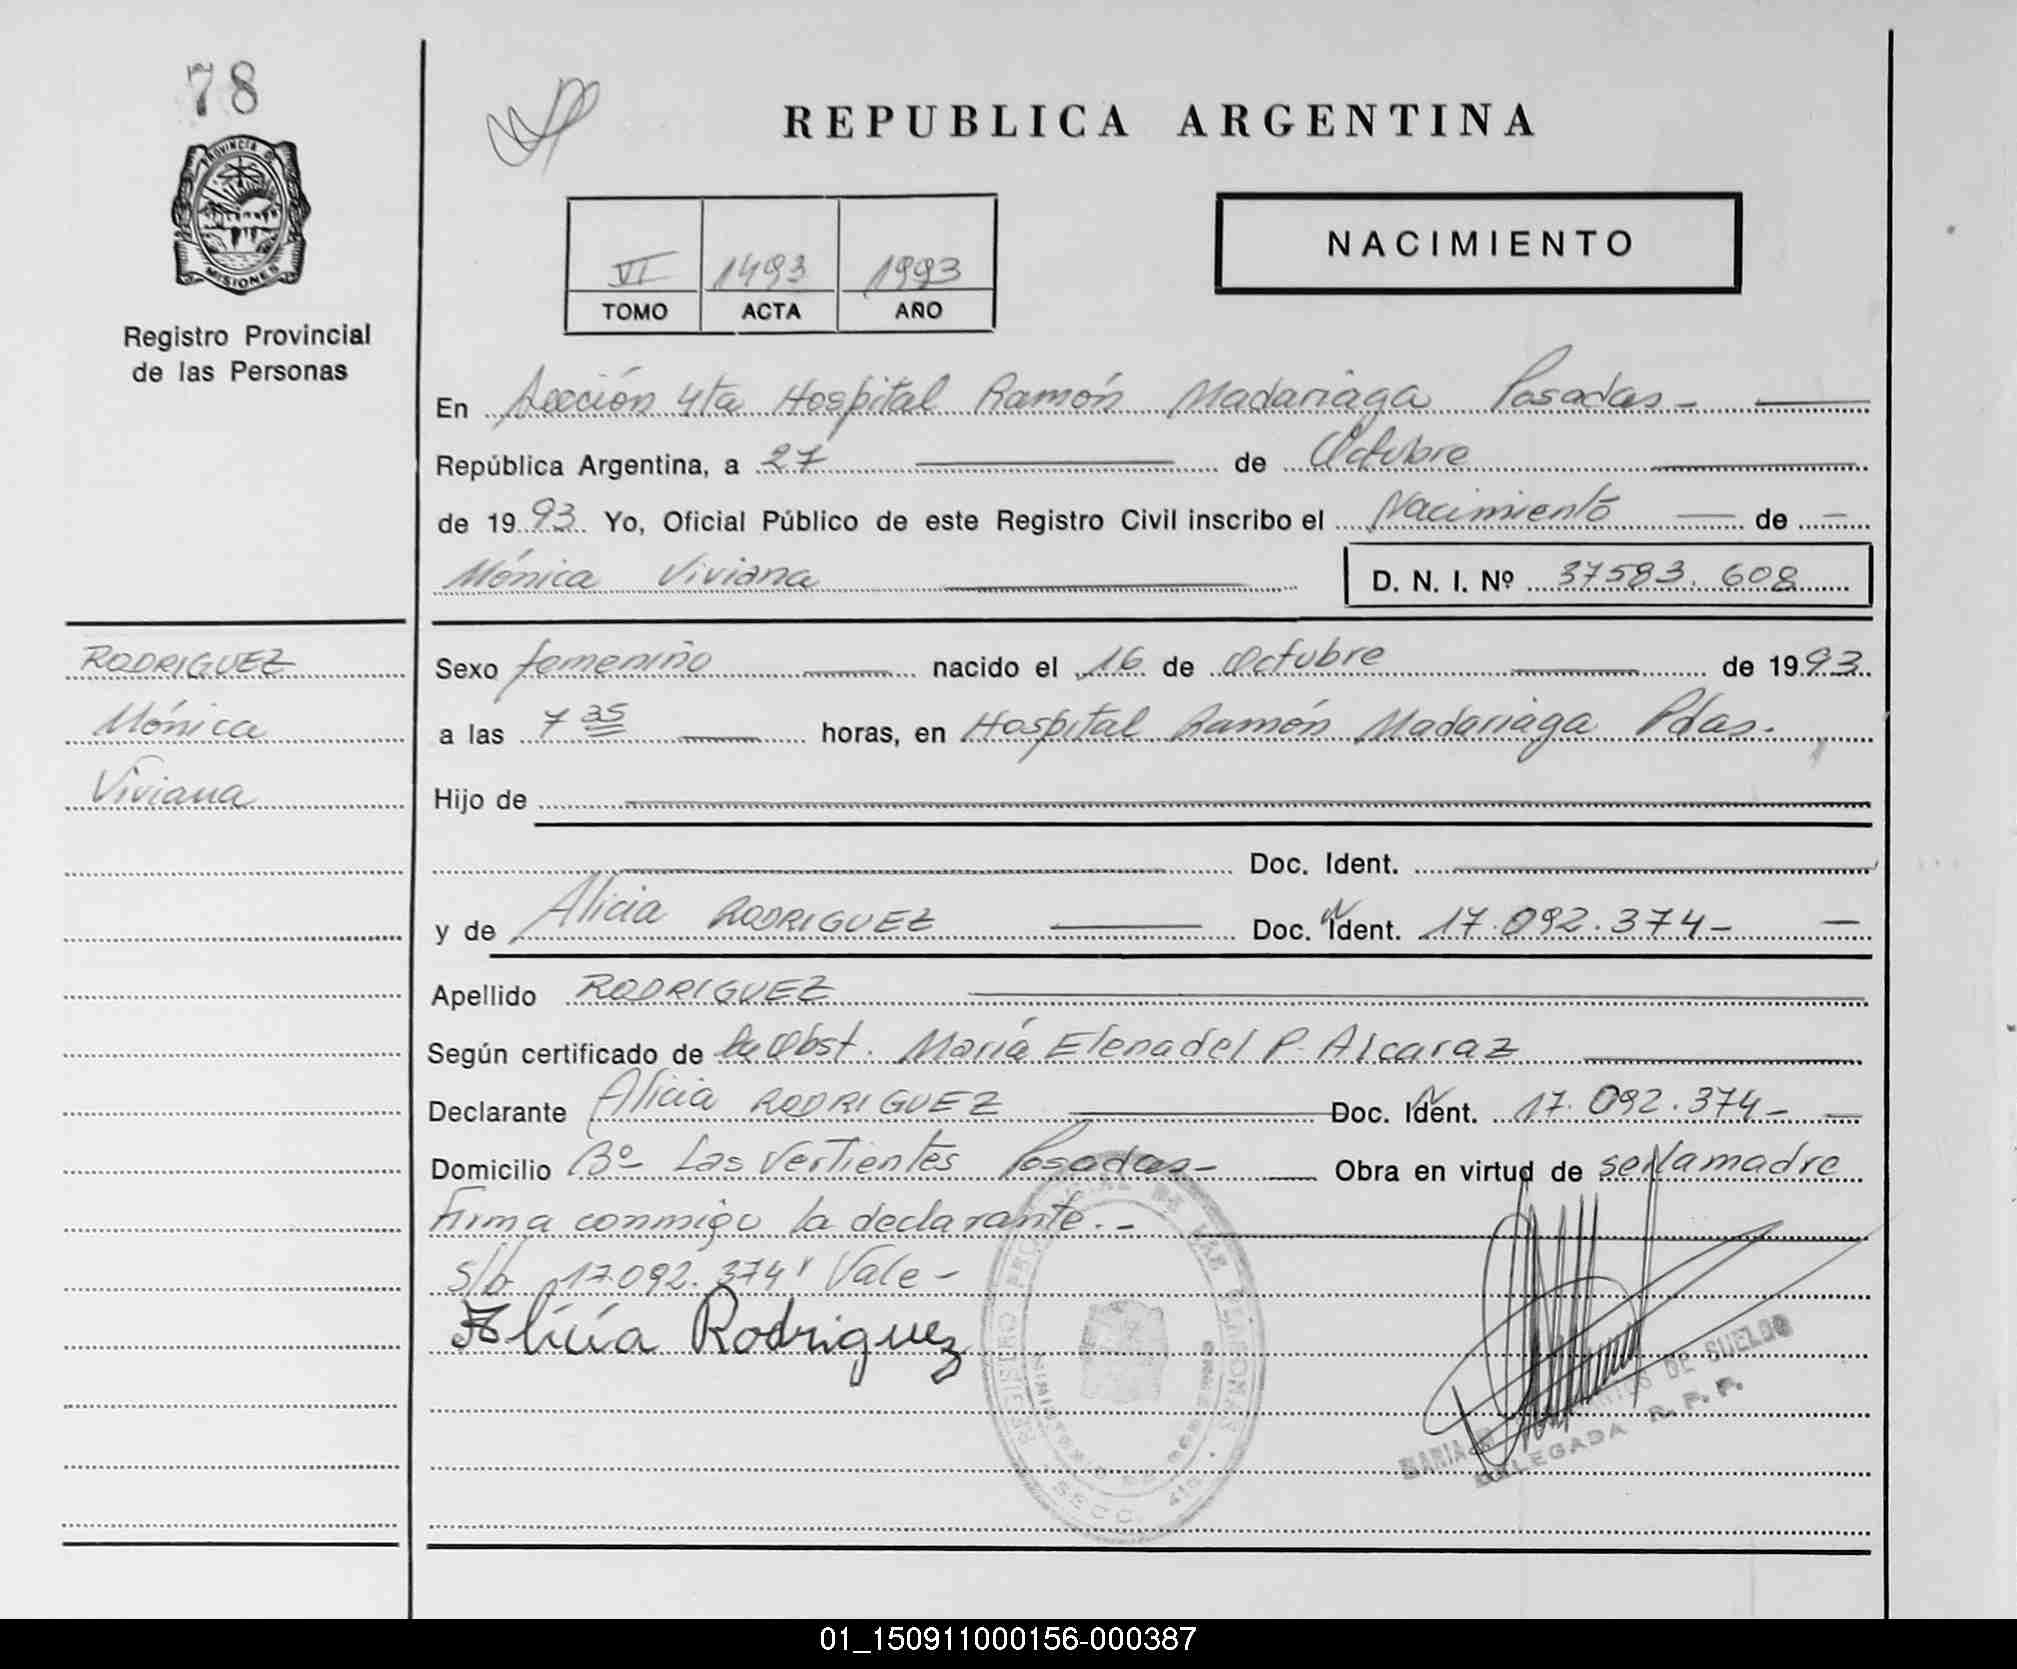 78
PROVINCIA DE
MISIONES
Registro Provincial
de las Personas
REPUBLICA ARGENTINA
VI 1493 1993
TOMO ACTA AÑO
NACIMIENTO
En Sección 4ta Hospital Ramón Madariaga Posadas-
República Argentina, a 27 de Octubre
de 1993 Yo, Oficial Público de este Registro Civil inscribo el Nacimiento de
Mónica Viviana D. N. I. Nº 37583.608
RODRIGUEZ
Mónica
Viviana
Sexo femenino nacido el 16 de Octubre de 1993.
a las 7 35 horas, en Hospital Ramón Madariaga Pdas.
Hijo de
Doc. Ident.
y de Alicia RODRIGUEZ Doc. Ident. 17.092.374-
Apellido RODRIGUEZ
Según certificado de la Obst. María Elena del P. Alcaraz
Declarante Alicia RODRIGUEZ Doc. Ident. 17.092.374-
Domicilio Bº- Las Vertientes Posadas- Obra en virtud de ser la madre
Firma conmigo la declarante.-
s/b 17.092.374" Vale-
Alicia Rodriguez
REGISTRO PROVINCIAL DE LAS PERSONAS
MINISTERIO DE GOBIERNO
SECC. 4ta
MARIA DE SUELDO
DELEGADA R. P. P.
01_150911000156-000387